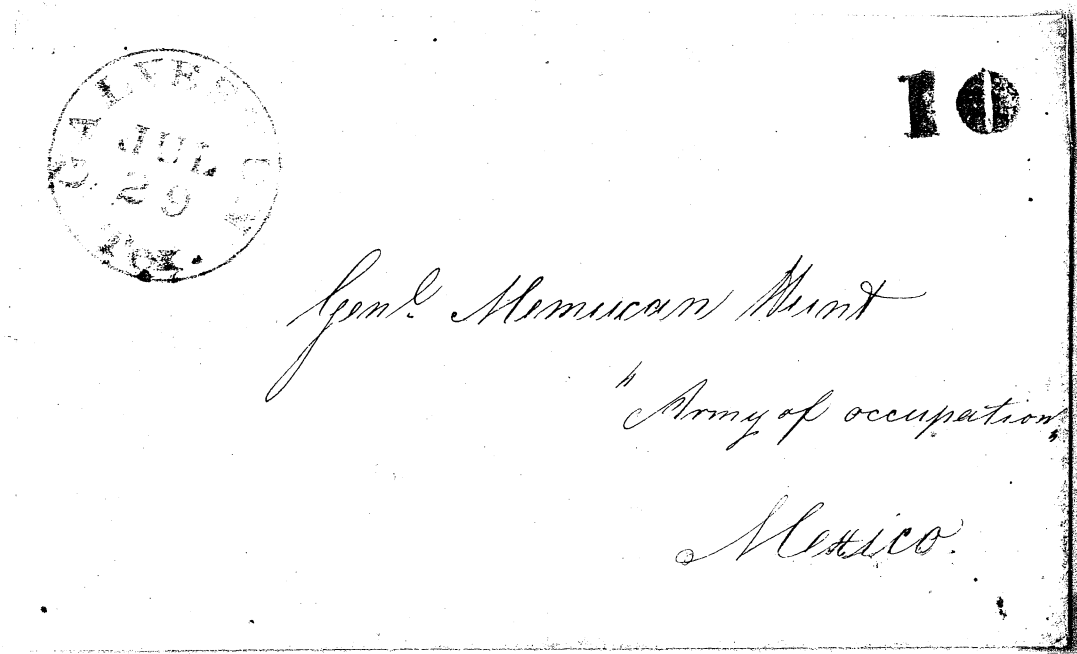 GALVESTON
JUL
29
Tex.
10
Genl. Memucan Hunt
"Army of occupation"
Mexico.